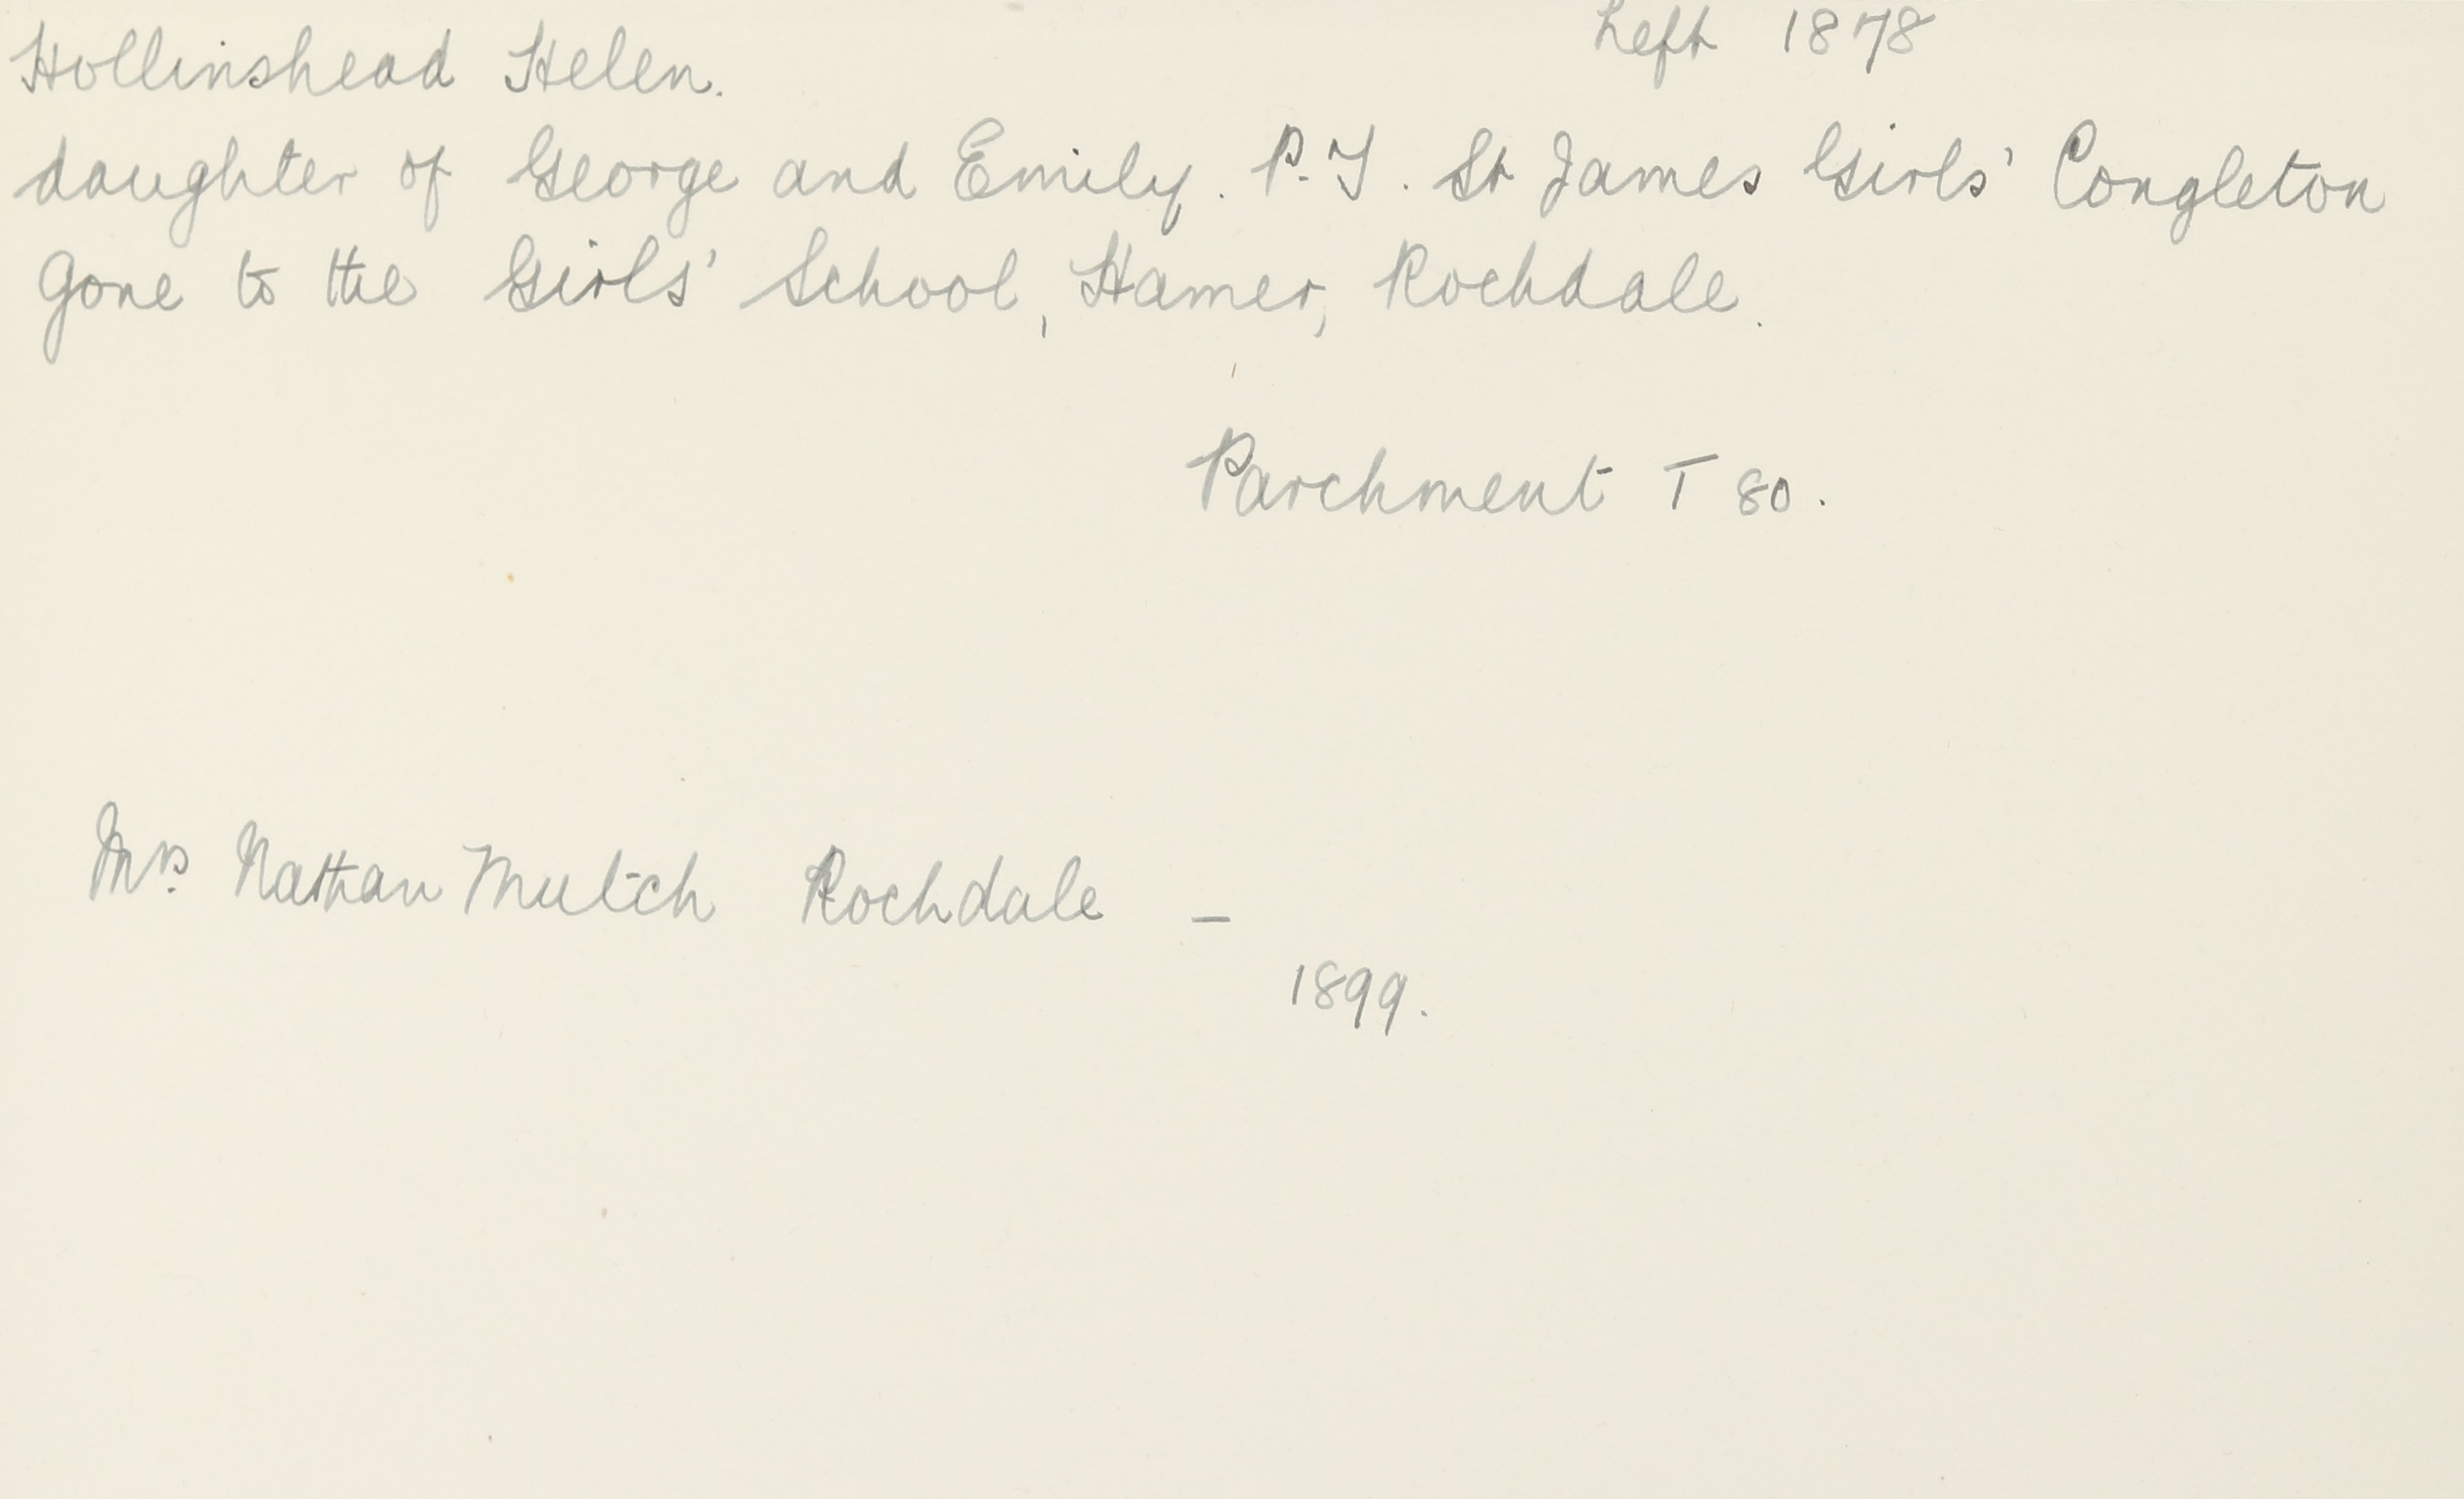 Hollinshead Helen. Left 1878
daughter of George and Emily. P.T. St James Girls' Congleton
Gone to the Girls' School, Hamer, Rochdale.
Parchment T 80.
Mrs. Nathan Mutch Rochdale –
1899.